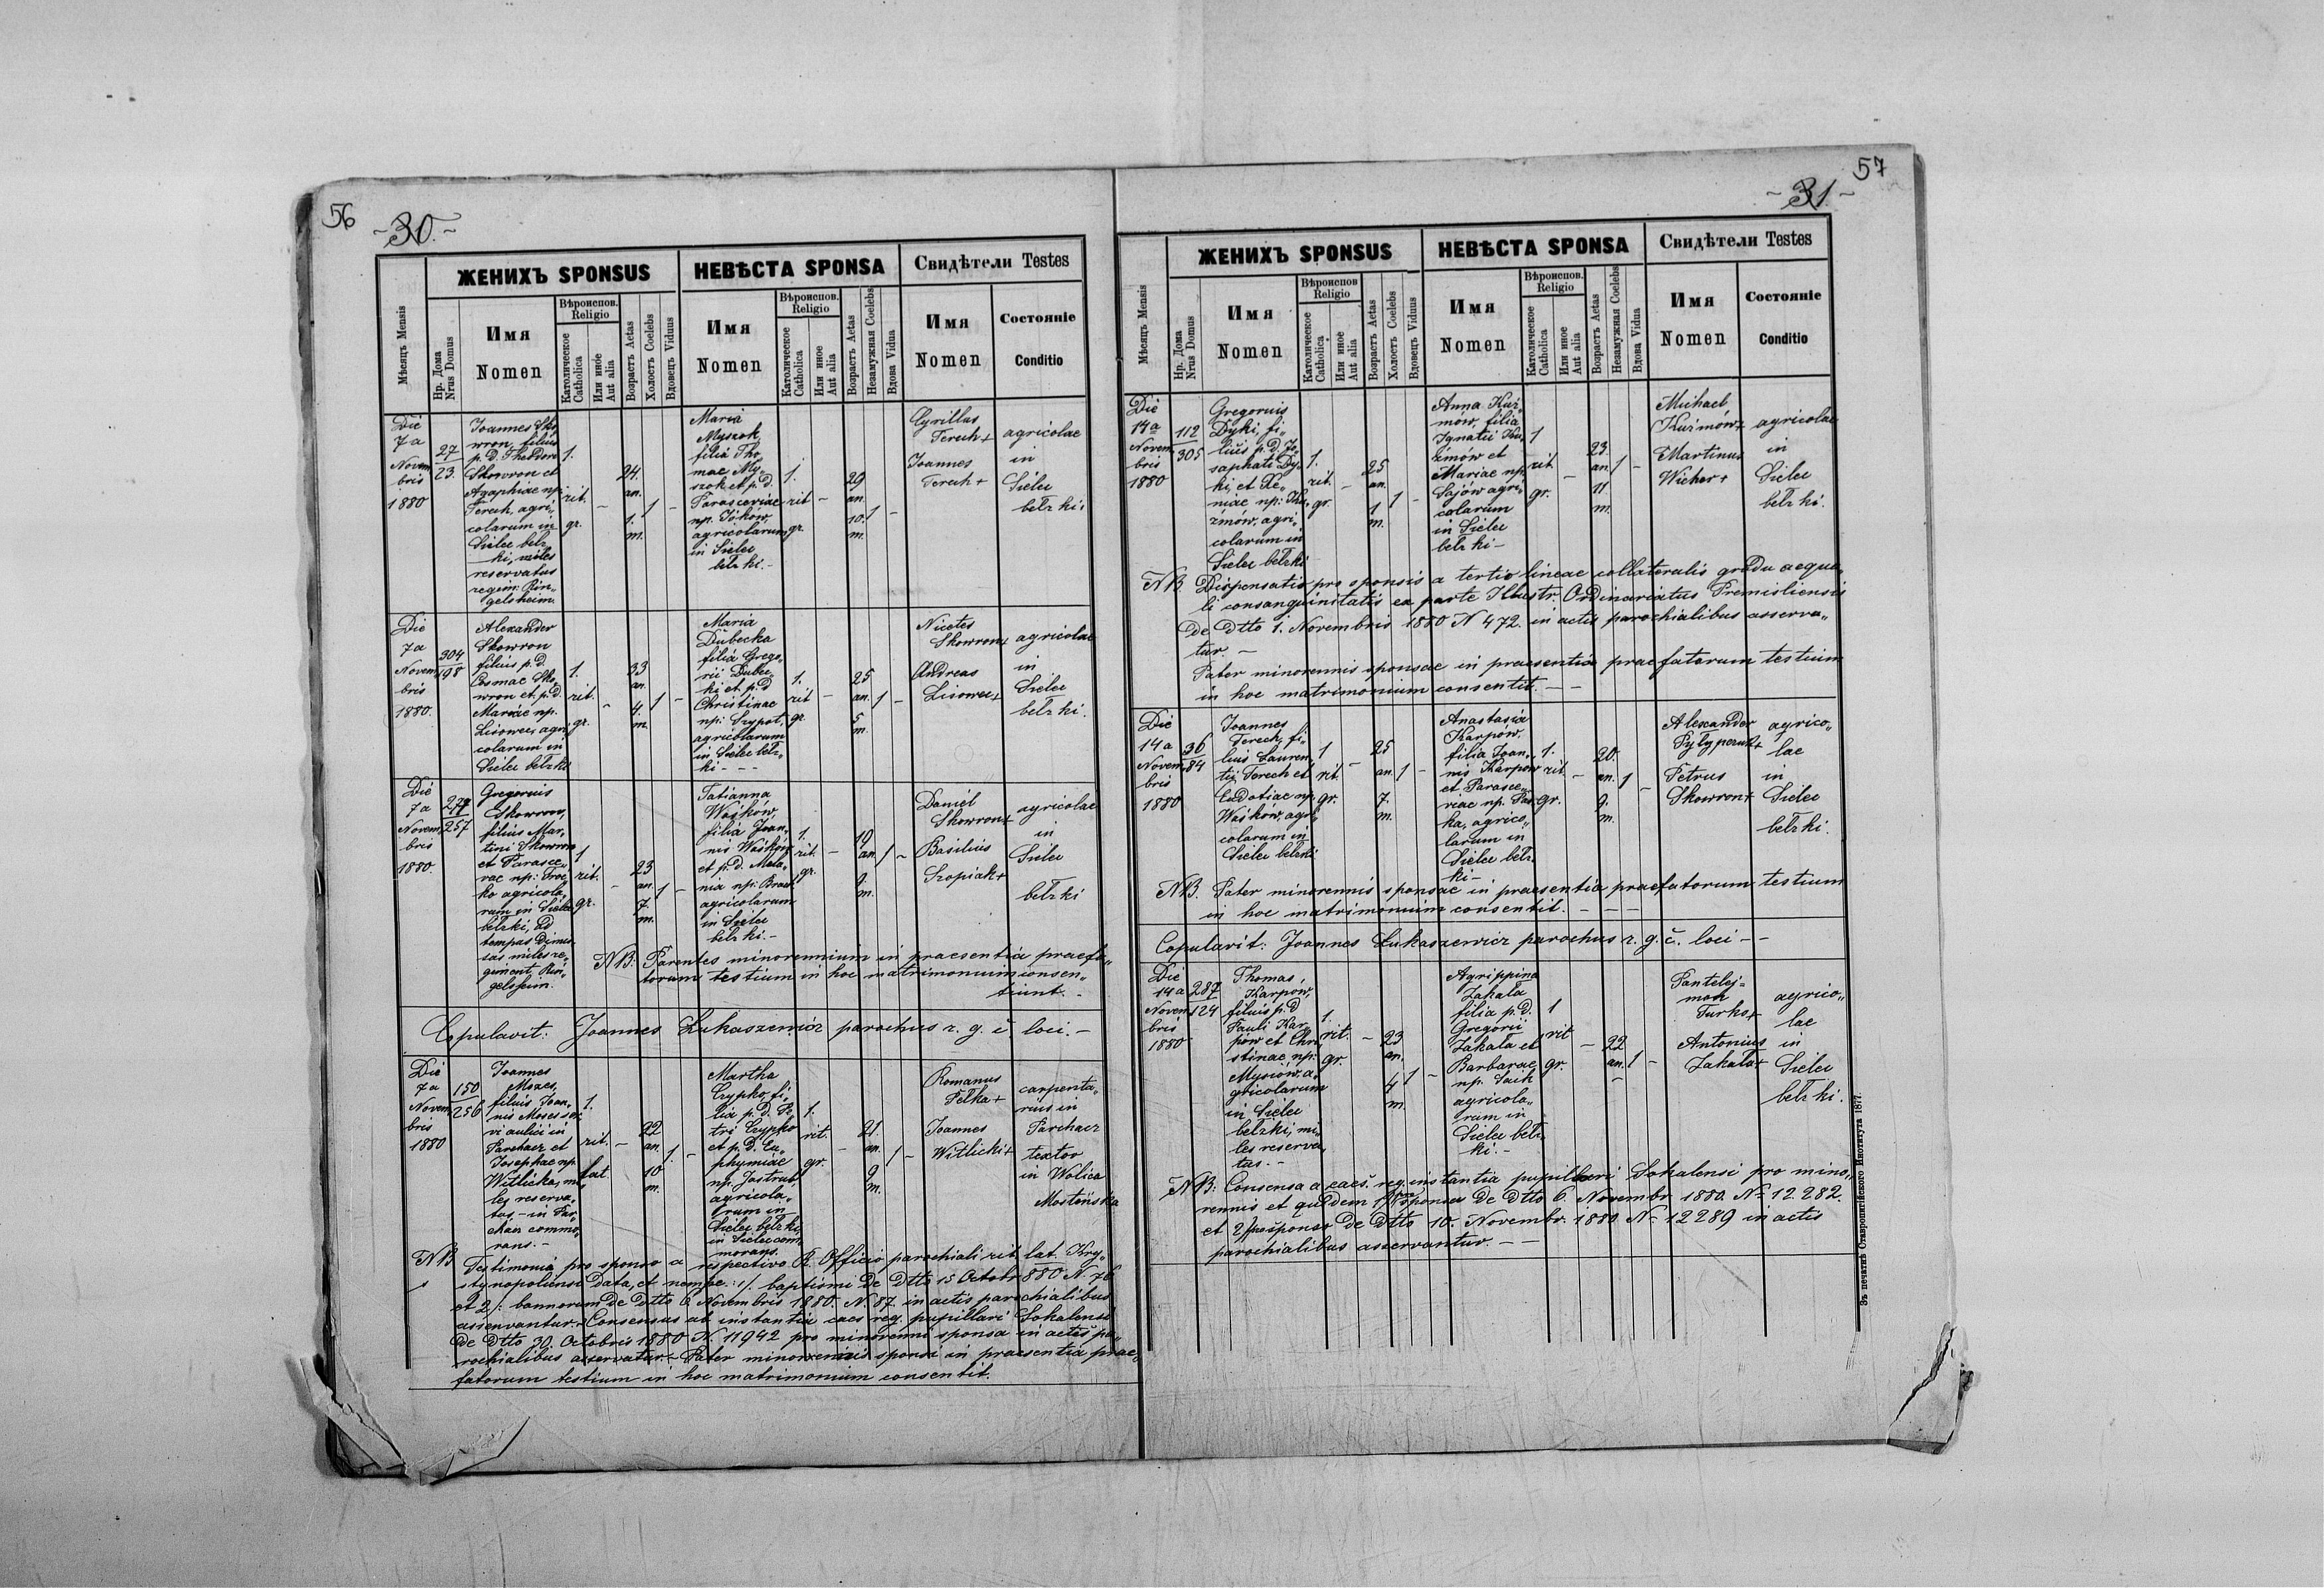 56
- 30. -
ЖЕНИХЪ SPONSUS
НЕВѢСТА SPONSA
Свидѣтели Testes
Мѣсяцъ Mensis
Нр. Дома
Nrus Domus
Имя
Nomen
Вѣроиспов.
Religio
Католическое
Catholica
Или иное
Aut alia
Возрастъ Aetas
Холостъ Coelebs
Вдовецъ Viduus
Имя
Nomen
Вѣроиспов.
Religio
Католическое
Catholica
Или иное
Aut alia
Возрастъ Aetas
Незамужная Coelebs
Вдова Vidua
Имя
Nomen
Состояніе
Conditio
Die
7a
Novem
bris
1880
27
23.
Joannes Sko
wron, filius
p. D. Theodori
Skowron et
Agaphiae np.
Terech, agri„
colarum in
Sielec bełz
ki, miles
reservatus
regim: Rin„
gelsheim.
1.
rit.
gr.
-
24.
an.
1.
m.
1
-
Maria
Myszok,
filia Tho
mae My„
szok et p. D.
Parasceviae
np. Jóków,
agricolarum
in Sielec
bełz ki. -
1.
rit
gr.
-
29
an.
10.
m.
1
-
Cyrillus
Terech +
Joannes
Terech +
agricolae
in
Sielec
bełz ki.
Die
7a
Novem
bris
1880.
304
198
Alexander
Skowron
filius p. D.
Cosmae Sko„
wron et p. D.
Mariae np.
Lisowec, agri„
colarum in
Sielec bełzki
1.
rit.
gr.
-
33
an.
4.
m.
1
-
Maria
Dubecka
filia Grego„
rii Dubec„
ki et p. D
Christinae
np: Szypot,
agricolarum
in Sielec bełz„
ki - - -
1.
rit
gr.
-
25
an.
5
m.
1
-
Nicetes
Skowron +
Andreas
Lisowec +
agricolae
in
Sielec
bełz ki.
Die
7a
Novem
bris
1880.
277
257
Gregorius
Skowron,
filius Mar„
tini Skowron
et Parasce„
vae np:
ko agricola„
rum in Sielec
bełzki, ad
tempus dimis
sus miles re„
giment. Rin„
gelsheim.
1
rit.
gr.
-
23
an.
7.
m.
1
-
Tatianna
Waśków,
filia Joan„
nis Waśków
et p. D. Mela„
nia np:
agricolarum
in Sielec
bełz ki. -
1.
rit.
gr.
-
19
an.
9.
m.
1
-
Daniel
Skowron +
Basilius
Szopiak +
agricolae
in
Sielec
bełzki
NB: Parentes minorennium in praesentia praefa„
torum testium in hoc matrimonium consen„
tiunt. -
Copulavit: Joannes Łukaszewicz parochus r. g. c. loci. -
Die
7a
Novem
bris
1880
150
256
Joannes
Mozes,
filius Joan„
nis Mozes ser
vi aulici in
Parchacz et
Josephae np.
Witlicka, mi„
les reserva„
tus - in Par
chacz commo„
rans. -
1.
rit.
lat.
-
22
an.
10
m.
1.
-
Martha
Czypko, fi„
lia p. D. Pe„
tri Czypko
et p. D. Eu„
phymiae
np. Jastrub,
agricola„
rum in
Sielec bełzki,
in Sielec com„
morans.
1.
rit.
gr.
-
21.
an.
9
m.
1
-
Romanus
Pełka +
Joannes
Witlicki +
carpenta„
rius in
Parchacz
textor
in Wolica
NB Testimonia pro sponso a respectivo R. Officio parochiali rit. lat. Kry„
stynopoliensi data, et nempe: 1/. baptismi de dtto 15 Octobr 880 N. 76
et 2/: bannorum de dtto 6 Novembris 1880. N. 87 in actis parochialibus
asservantur. - Consensus ab instantia caes reg. pupillari Sokalensi
de dtto 30 Octobris 1880 N. 11942 pro minorenni sponsa in actis pa„
rochialibus asservatur. - Pater minorennis sponsi in praesentia prae„
fatorum testium in hoc matrimonium consentit.
57
- 31. -
ЖЕНИХЪ SPONSUS
НЕВѢСТА SPONSA
Свидѣтели Testes
Мѣсяцъ Mensis
Нр. Дома
Nrus Domus
Имя
Nomen
Вѣроиспов.
Religio
Католическое
Catholica
Или иное
Aut alia
Возрастъ Aetas
Холостъ Coelebs
Вдовецъ Viduus
Имя
Nomen
Вѣроиспов.
Religio
Католическое
Catholica
Или иное
Aut alia
Возрастъ Aetas
Незамужная Coelebs
Вдова Vidua
Имя
Nomen
Состояніе
Conditio
Die
14a
Novem
bris
1880
112
305
Gregorius
Dyki, fi„
lius p. D. Jo„
saphati Dy„
ki, et Xe„
niae np: Ku„
źmów, agri„
colarum in
Sielec bełzki
1.
rit.
gr.
-
25
an.
1
m.
1
-
Anna Kuź„
mów, filia
Ignatii Ku„
źmów et
Mariae np.
Sajów agri„
colarum
in Sielec
bełz ki -
1
rit.
gr.
-
23.
an.
11
m.
1
-
Michael
Kuźmów +
Martinus
Wicher +
agricolae
in
Sielec
bełz ki.
NB. Dispensatio pro sponsis a tertio lineae collateralis gradu aequa„
li consanguinitatis ex parte Illustr. Ordinariatus Premisliensis
de dtto 1. Novembris 1880 N 472. in actis parochialibus asserva„
tur. -
Pater minorennis sponsae in praesentia praefatorum testium
in hoc matrimonium consentit. - -
Die
14a
Novem
bris
1880
36
84
Joannes
Terech, fi„
lius Lauren„
tij Terech et
Eudotiae np.
Waśków, agri„
colarum in
Sielec bełzki
1
rit.
gr.
-
25
an.
7.
m.
1
-
Anastasia
Karpów,
filia Joan„
nis Karpów
et Parasce„
viae np. Par
ka, agrico„
larum in
Sielec bełz
ki -
1.
rit.
gr.
-
20.
an.
9.
m.
1
-
Alexander
Pyłypczuk +
Petrus
Skowron +
agrico„
lae
in
Sielec
bełz ki.
NB. Pater minorennis sponsae in praesentia praefatorum testium
in hoc matrimonium consentit. - - -
Copulavit: Joannes Łukaszewicz parochus r. g. c. loci - -
Die
14a
Novem
bris
1880
287
124
Thomas
Karpów,
filius p. D
Pauli Kar„
pów et Chri„
stinae, np:
Mysiów, a„
gricolarum
in Sielec
bełzki, mi„
les reserva„
tus. -
1.
rit.
gr.
-
23
an.
4
m.
1
-
Agrippina
Zakała
filia p. D.
Gregorii
Zakała et
Barbarae
np. Sach
agricola„
rum in
Sielec bełz„
ki. -
1
rit
gr.
-
22
an.
-
1
-
Pantelej=
mon
Turko +
Antonius
Zakała +
agrico„
lae
in
Sielec
bełz ki.
NB: Consensa a caes. reg. instantia pupillari Sokalensi pro mino„
rennis et quidem 1/ pro sponsa de dtto 6. Novembr 1880. Nº 12282.
et 2/ pro sponso de dtto 10. Novembr. 1880 Nº 12289 in actis
parochialibus asservantur. - -
Зъ печатнѣ Ставропигійского Института 1877.